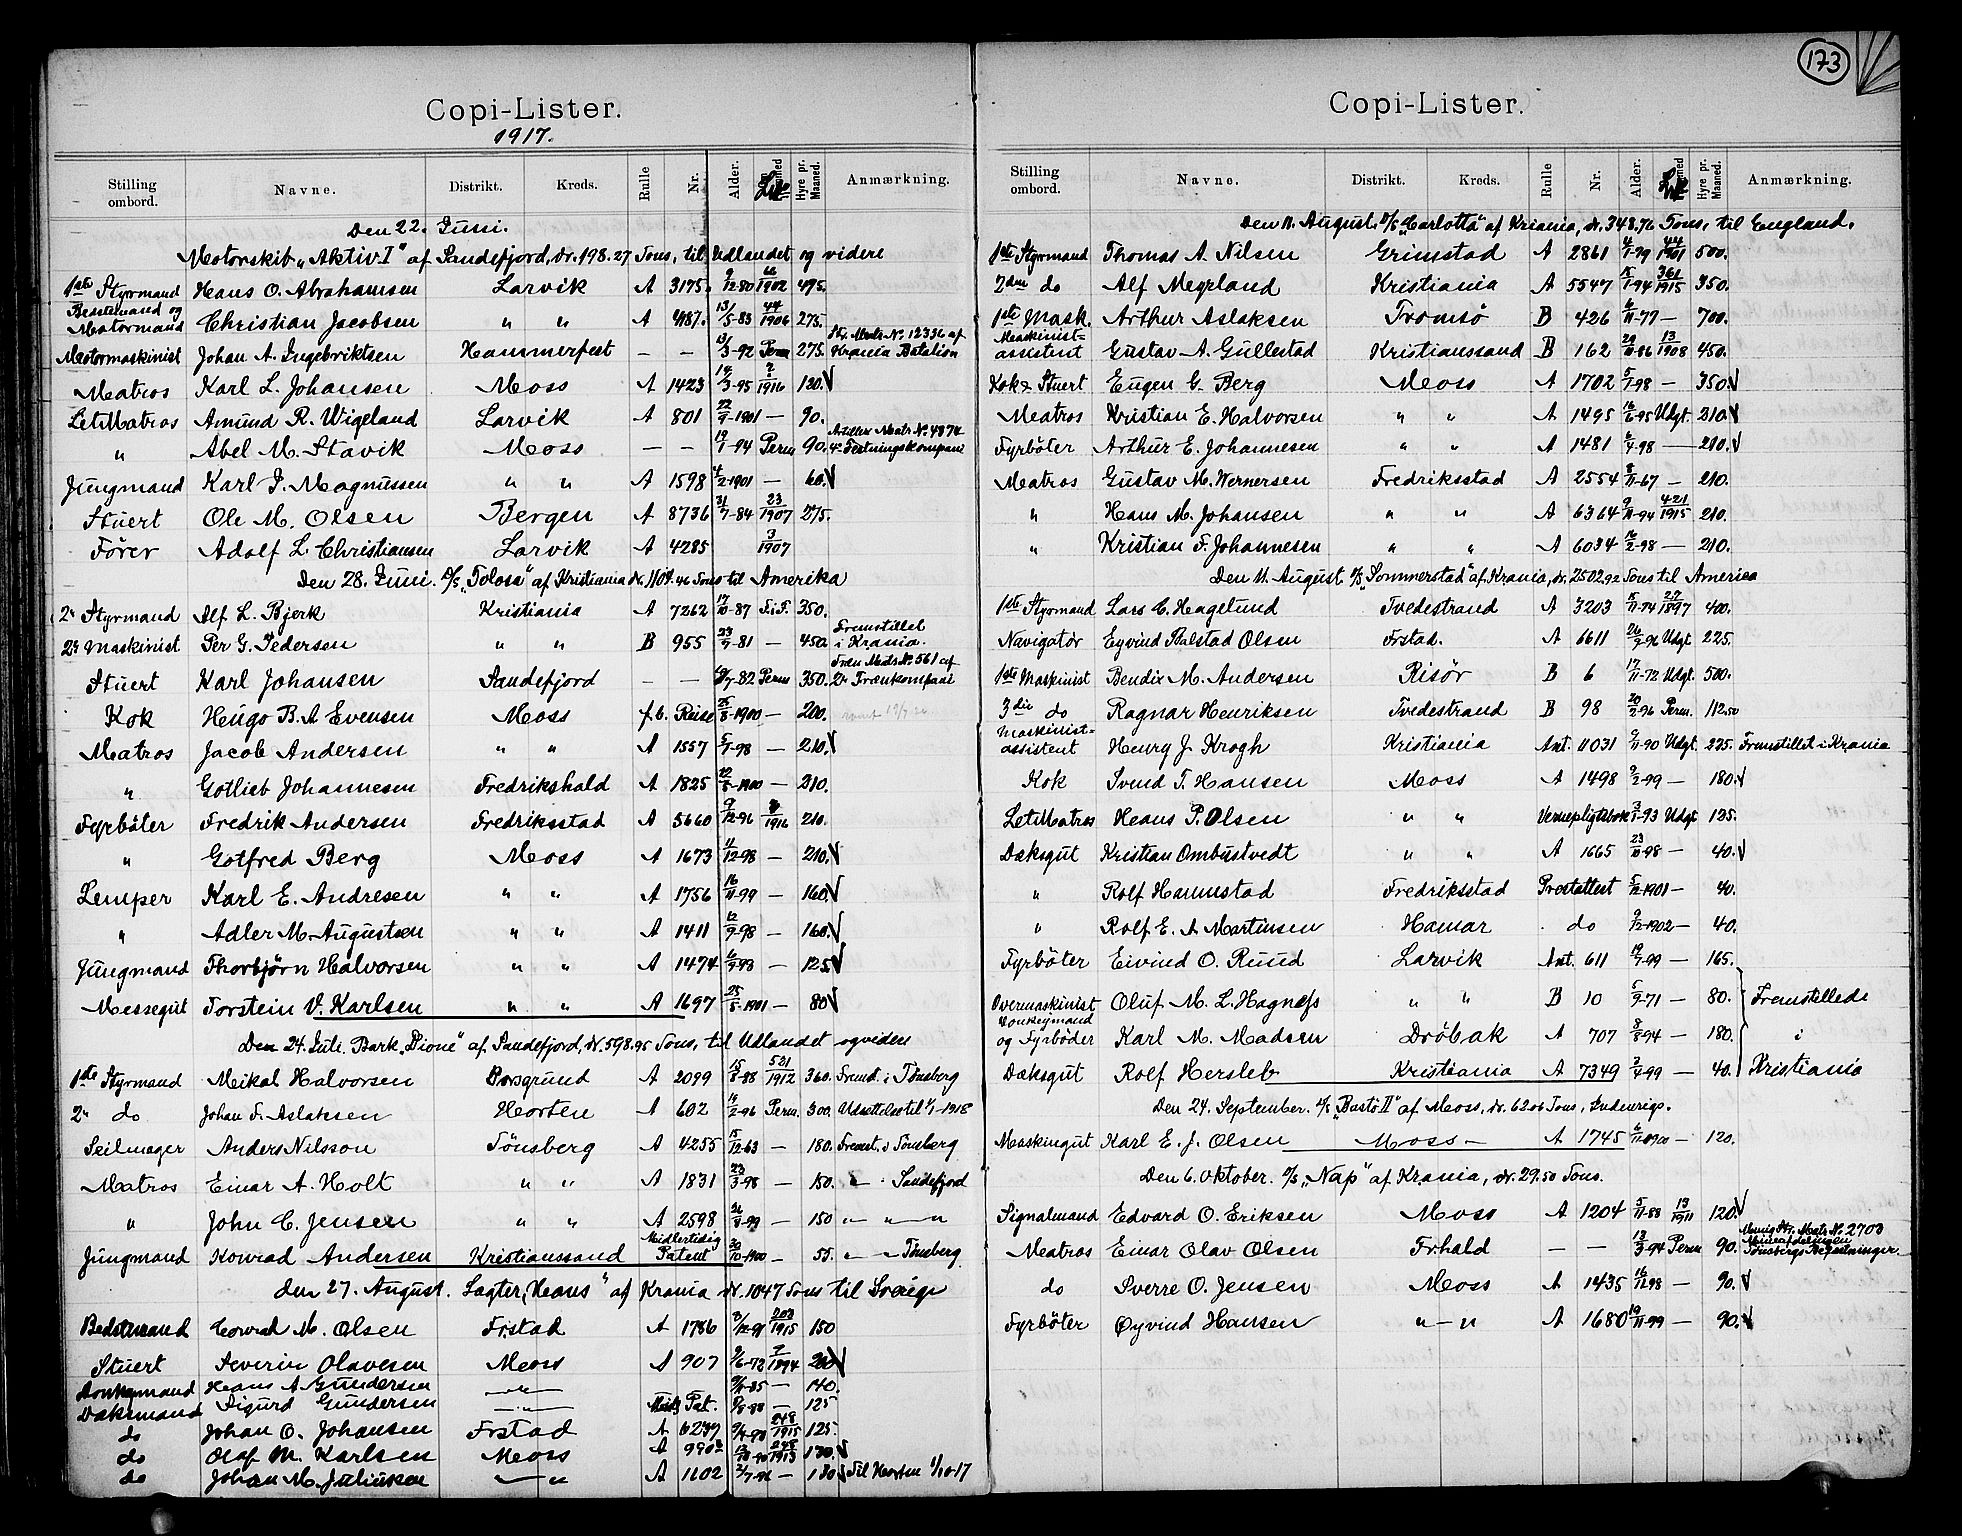 173
Copi-Lister.
1917.
Stilling ombord. Navne. Distrikt. Kreds. Rulle Nr. Alder. Hyre pr. Maaned. Anmærkning.
Den 22. Juni.
Motorskib „Aktiv I" af Sandefjord, dr. 198.27 Tons, til Udlandet og videre
1ste Styrmand Hans O. Abrahamsen Larvik A 3175. 9/12-80 1902 495.
Bedstemand og Motormand Christian Jacobsen " " A 4187. 13/5-83 44/1906 275.
Motormaskinist Johan A. Ingebriktsen Hammerfest — — 13/3-92 Perm 275. Mats No. 12336 af Krania Batalion
Matros Karl L. Johansen Moss A 1423 19/3-95 2/1916 120.
LetMatros Amund R. Wigeland Larvik A 801 22/9-1901 — 90.
" Abel M. Stavik Moss — — 19/1-94 Perm 90. No. 4874 4de Festningskompani
Jungmand Karl J. Magnussen " " A 1598 4/2-1901 — 60.
Stuert Ole M. Olsen Bergen A 8736 31/7-84 23/1907 275.
Förer Adolf L. Christiansen Larvik A 4285 3/1907
Den 28. Juni. D/S „Tolosa" af Kristiania dr. 1109.46 Tons til Amerika
2n Styrmand Alf L. Bjerk Kristiania A 7262 17/10-87 F.i.F. 350.
2n Maskinist Per G. Pedersen " " B 955 23/9-81 — 450. Fremstillet i Krania.
Stuert Karl Johansen Sandefjord — — 7-82 Perm 350. No. 561 af 2n Trænkompani
Kok Hugo B. A Evensen Moss f.b. Reise 25/8-1900 — 200.
Matros Jacob Andersen " " A 1557 5/7-98 — 210.
" Gotlieb Johannesen Fredrikshald A 1825 22/8-1900 — 210.
Fyrböter Fredrik Andersen Fredriksstad A 5660 9/12-96 1916 210.
" Gotfred Berg Moss A 1673 11/12-98 — 210.
Lemper Karl E. Andresen " " A 1756 16/11-99 — 160.
" Adler M. Augustsen " " A 1411 12/9-98 — 160.
Jungmand Thorbjörn Halvorsen " " A 1474 6/9-98 — 125
Messegut Torstein V. Karlsen " " A 1697 25/5-1901 — 80
Den 24. Juli. Bark „Dione" af Sandefjord, dr. 598.95 Tons, til Udlandet og viden
1ste Styrmand Mikal Halvorsen Porsgrund A 2099 15/8-88 521/1912 360. Fremst. i Tönsberg
2n do Johan F. Aslaksen Horten A 602 14/2-96 Perm. 300. Udsettelse til 1/1-1918
Seilmager Anders Nilsson Tönsberg A 4255 15/12-63 — 180. Fremst. i Tönsberg
Matros Einar A. Holt " " A 1831 23/3-98 — 150. " " Sandefjord
" John C. Jensen " " A 2598 26/8-99 — 150 " " "
Jungmand Konrad Andersen Kristianssand Midlertidig Patent 20/10-1900 — 55. " " Tönsberg.
den 27. August. Lagter „Hans" af Krania dr. 1047 Tons til Sverige
Bedstmand Conrad M. Olsen Frstad A 1786 8/12-91 203/1915 150
Stuert Severin Olavesen Moss A 907 9/6-72 7/1894 200
Donkeymand Hans A Gundersen " 85 — 140.
Dæksmand Sigurd Gundersen " Midl. Pat. 9/8-88 — 125
do Johan O. Johansen Frstad A 6239 248/1915 125.
do Olaf M. Karlsen Moss A 9902 1913 130.
do Johan M. Juliussen " " A 1102 2/7-96 — 130 Til Horten 1/10-17
Copi-Lister.
Stilling ombord. Navne. Distrikt. Kreds. Rulle Nr. Alder. Hyre pr. Maaned. Anmærkning.
Den 11. August. D/S „Carlotta" af Krania, dr. 348.76 Tons, til England.
1ste Styrmand Thomas A. Nilsen Grimstad A 2861 4/1-79 44/1901 500.
2den do Alf Meyeland Kristiania A 5547 15/1-94 361/1915 350.
1ste Mask. Arthur Aslaksen Tromsö B 426 6/11-77 — 700.
Maskinist-assistent Gustav A. Gullestad Kristianssand B 162 29/10-86 13/1908 450.
Kok & Stuert Eugen G. Berg Moss A 1702 5/7-98 — 350.
Matros Kristian E. Halvorsen " " A 1495 16/6-95 Udgt. 210.
Fyrböter Arthur E. Johannesen " " A 1481 6/9-98 — 210.
Matros Gustav M. Wernersen Fredriksstad A 2554 8/11-67 — 210.
" Hans M. Johansen " " A 6364 9/11-94 421/1915 210.
" Kristian F. Johannesen " " A 6034 16/2-98 — 210.
Den 11. August D/S „Sommerstad" af Krania, dr. 2502.92 Tons til America
1ste Styrmand Lars C. Hagelund Tvedestrand A 3203 15/11-74 27/1897 400.
Navigatör Eyvind Olsen Frstad. A 6611 26/9-96 Udgt. 225.
1ste Maskinist Bendix M. Andersen Risör B 6 17/11-72 Udgt. 500.
3die do Ragnar Henriksen Tvedestrand B 98 20/2-96 Perm. 112.50
Maskinist-assistent Henry J. Krogh Kristiania Ant. 11031 9/11-90 Udgt. 225. Fremstillet i Krania
Kok Svend T. Hansen Moss A 1498 9/2-99 — 180.
LetMatros Hans P. Olsen " " Vernepligtsbok 2/1-93 Udgt 125.
Dæksgut Kristian Ombustvedt " " A 1665 23/10-98 — 40.
" Rolf Hannestad Fredriksstad Prestattest 5/12-1901 — 40.
" Rolf E. A Martinsen Hamar do 9/12-1902 — 40.
Fyrböter Eivind O. Ruud Larvik Ant. 611 19/7-99 — 165.
Overmaskinist Oluf M. L. Hagness " " B 10 5/9-71 — 80. Fremstillede
Donkeymand og Fyrböder Karl M. Madsen Dröbak A 707 8/8-94 — 180. i
Dæksgut Rolf Hersleb Kristiania A 7349 2/4-99 — 40. Kristiania
Den 24. September. D/S „Bastö II" af Moss, dr. 62.06 Tons, Indenrigs.
Maskingut Karl E. J. Olsen Moss — A 1745 6/11-1900 — 120.
Den 6. Oktober. D/S „Nap" af Krania, dr. 29.50 Tons.
Signalmand Edvard O. Eriksen Moss A 1204 5/11-88 13/1911 120.
Matros Einar Olav Olsen Frhald — — 13/3-94 Perm 90. No. 2703 Mineafdelingen Tönsbergs Befestninger
do Sverre O. Jensen Moss A 1435 16/12-98 — 90.
Fyrböter Øyvind Hansen " — " A 1680 19/11-99 — 90.